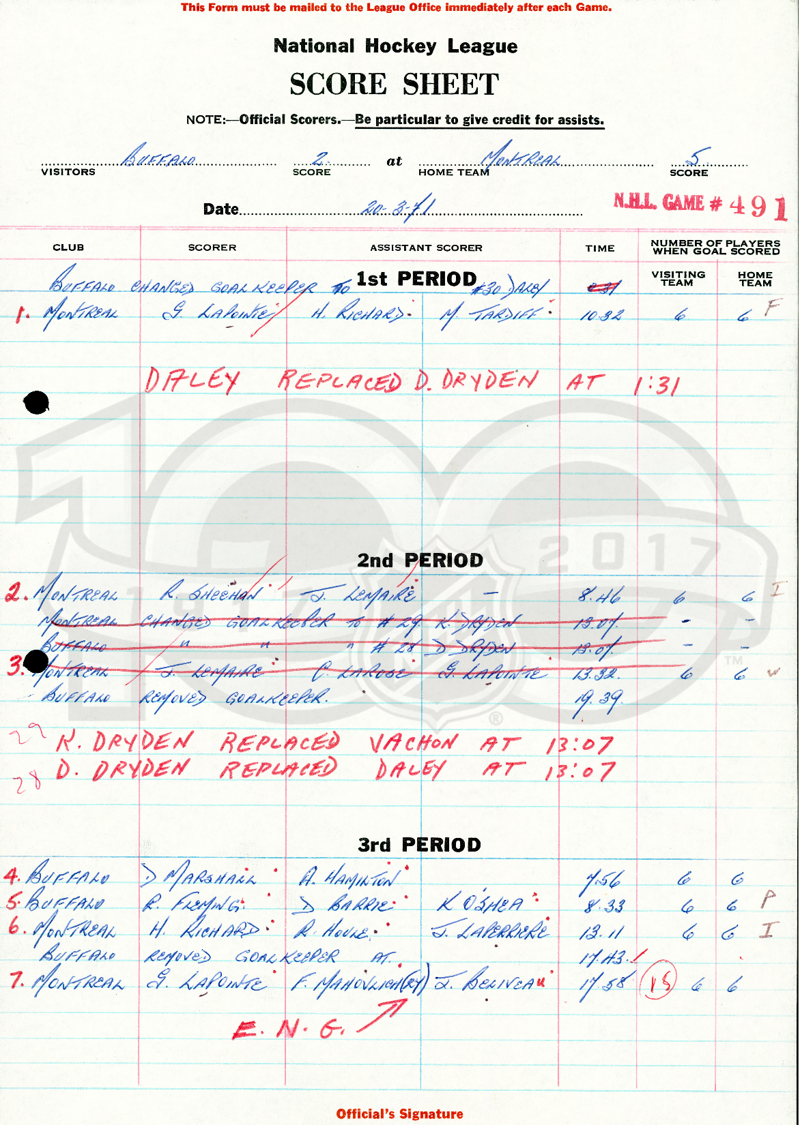 This Form must be mailed to the League Office immediately after each Game.
National Hockey League
SCORE SHEET
NOTE:—Official Scorers.—Be particular to give credit for assists.
BUFFALO 2 at MONTREAL 5
VISITORS SCORE HOME TEAM SCORE
Date 20-3-71 N.H.L. GAME # 491
CLUB SCORER ASSISTANT SCORER TIME NUMBER OF PLAYERS WHEN GOAL SCORED
1st PERIOD VISITING TEAM HOME TEAM
BUFFALO CHANGED GOALKEEPER TO #30 DALEY
1. MONTREAL G LAPOINTE H. RICHARD M TARDIFF 10:32 6 6 F
DALEY REPLACED D. DRYDEN AT 1:31
100
1917 2017
TM
2nd PERIOD
2. MONTREAL R. SHEEHAN J. LEMAIRE — 8.46 6 6 I
MONTREAL CHANGED GOALKEEPER TO #29 K DRYDEN 13.07 - -
BUFFALO " " " #28 D DRYDEN 13.07 - -
3. MONTREAL J. LEMAIRE C. LAROSE G. LAPOINTE 13.32 6 6 W
BUFFALO REMOVED GOALKEEPER. 19.39
29 K. DRYDEN REPLACED VACHON AT 13:07
28 D. DRYDEN REPLACED DALEY AT 13:07
3rd PERIOD
4. BUFFALO D MARSHALL A. HAMILTON 7.56 6 6
5. BUFFALO R. FLEMING D BARRIE K O'SHEA 8.33 6 6 P
6. MONTREAL H. RICHARD R. HOULE J. LAPERRIERE 13.11 6 6 I
BUFFALO REMOVED GOALKEEPER AT 17.43
7. MONTREAL G. LAPOINTE F. MAHOVLICH J. BELIVEAU 17.58 15 6 6
E.N.G.
Official's Signature